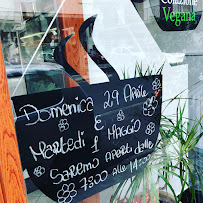 Colazione
Vegana
Domenica 29 Aprile
e
Martedì 1 Maggio
Saremo aperti dalle
7:300 alle 14:00